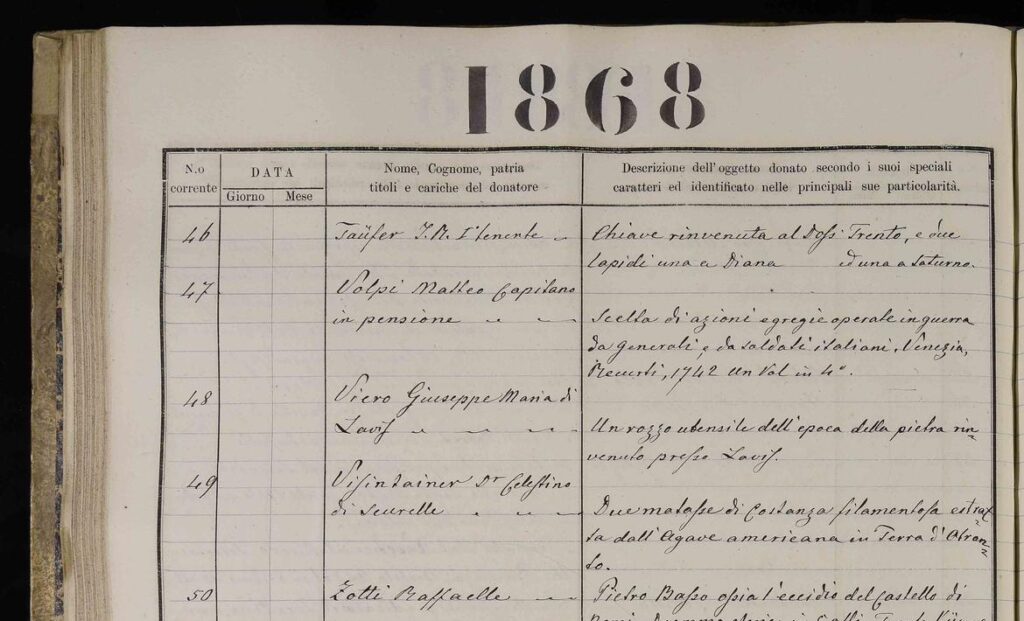 1868
N.o corrente
DATA
Giorno Mese
Nome, Cognome, patria
titoli e cariche del donatore
Descrizione dell'oggetto donato secondo i suoi speciali
caratteri ed identificato nelle principali sue particolarità.
46 Taüfer I. R. Itenente Chiave rinvenuta al Doss Trento, e due
lapidi una a Diana ed una a Saturno.
47 Volpi Matteo Capitano
in pensione Scelta di azioni egregie operate in guerra
da generali, e da soldati italiani. Venezia,
Recurti, 1742 Un Vol in 4°.
48 Viero Giuseppe Maria di
Lavis Un rozzo utensile dell'epoca della pietra rin=
venuto presso Lavis.
49 Visintainer Dr Celestino
di Scurelle Due matasse di Costanza filamentosa estrat=
ta dall'Agave americana in Terra d'Otran=
to.
50 Zotti Raffaelle Pietro Basso ossia l'eccidio del Castello di